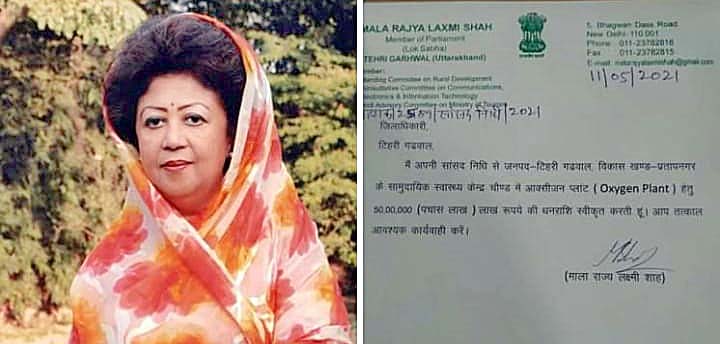 MALA RAJYA LAXMI SHAH
Member of Parliament
(Lok Sabha)
TEHRI GARHWAL (Uttarakhand)
5, Bhagwan Dass Road
New Delhi-110 001
Phone : 011-23782816
Fax : 011-23782815
E-mail: malarajyalaxmishah@gmail.com
Member:
Standing Committee on Rural Development
Consultative Committee on Communications,
Electronics & Information Technology
Hindi Advisory Committee on Ministry of Tourism
11/05/2021
/सांसद निधि/2021
जिलाधिकारी,
टिहरी गढवाल,
मैं अपनी सांसद निधि से जनपद-टिहरी गढवाल, विकास खण्ड-प्रतापनगर
के सामुदायिक स्वास्थ्य केन्द्र चौण्ड में आक्सीजन प्लांट ( Oxygen Plant ) हेतु
50,00,000 (पचास लाख ) लाख रूपये की धनराशि स्वीकृत करती हू। आप तत्काल
आवश्यक कार्यवाही करें।
(माला राज्य लक्ष्मी शाह)